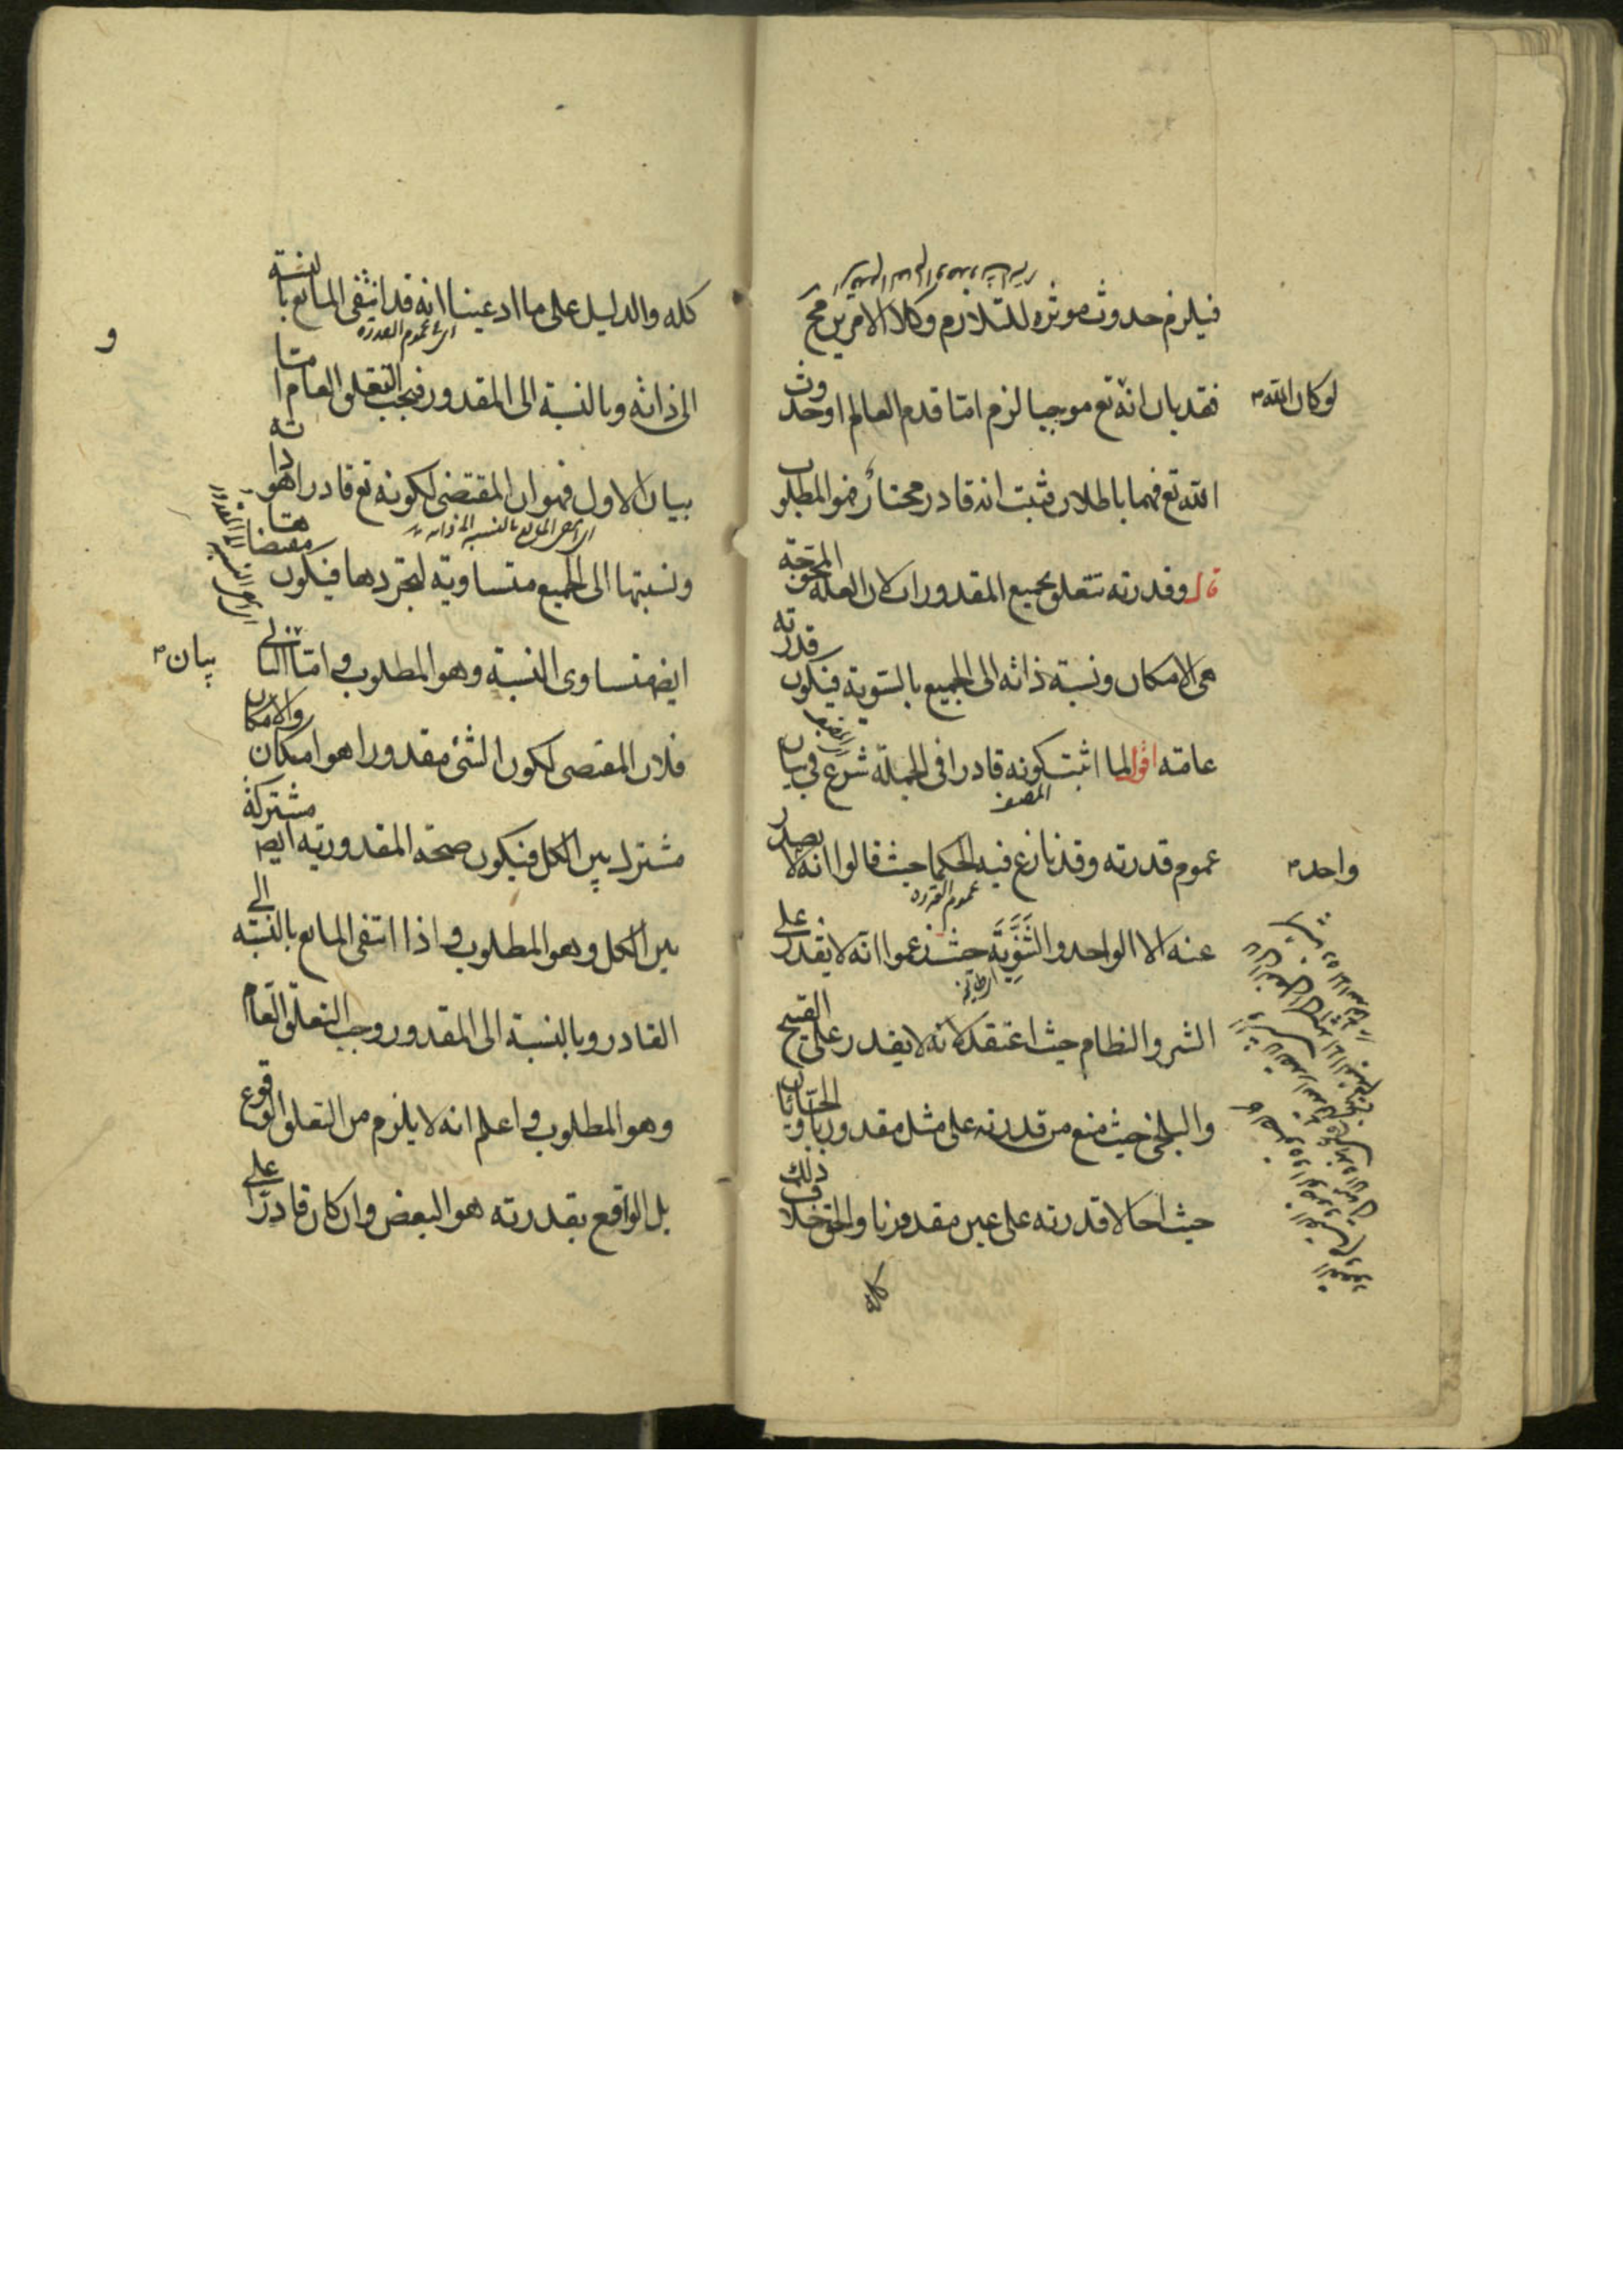 فيلزم حدوث موثره للتلازم وكلا الامرين مح
فقد بان انه تع موجبا لزم اما قدم العالم او حدوث
لو كان الله
الله تع فهما باطلان فثبت انه قادر مختار فهو المطلوب
قال وقدرته تتعلق بجميع المقدورات لان العلة المحوجة
هى الامكان ونسبة ذاته الى الجميع بالسوية فيكون قدرته
عامته اقول لما اثبت كونه قادرا فى الجملة شرع في بيان
المصنف
عموم قدرته وقد نازع فيه الحكما حيث قالوا انه لا يصدر
واحد
عموم القدرة
عنه الا الواحد والثَنَوِيَّة حيث زعموا انه لا يقدر على
الشر والنظام حيث اعتقد لانه لا يقدر على القبيح
والبلخى حيث منع من قدرته على مثل مقدورنا والجبائيان
حيث احالا قدرته على عين مقدورنا والحق خلاف ذلك
كله
كله والدليل على ما ادعينا انه قد انتفى المانع بالنسبة
و
اى عموم القدرة
الى ذاته وبالنسبة الى المقدور فيجب التعلق العام اما
بيان الاول فهو ان المقتضى لكونه تع قادرا هو ذاته
ونسبتها الى الجميع متساوية لتجردها فيكون مقتضاها
ايض متساوى النسبة وهو المطلوب و اما الثانى
بيان
فلان المقتضى لكون الشئ مقدورا هو امكانه والامكان
مشترك بين الكل فيكون صحة المقدورية ايض مشتركة
بين الكل وهو المطلوب و اذا انتفى المانع بالنسبة الى
القادر وبالنسبة الى المقدور وجب التعلق العام
وهو المطلوب و اعلم انه لا يلزم من التعلق الوقوع
بل الواقع بقدرته هو البعض وان كان قادرا على